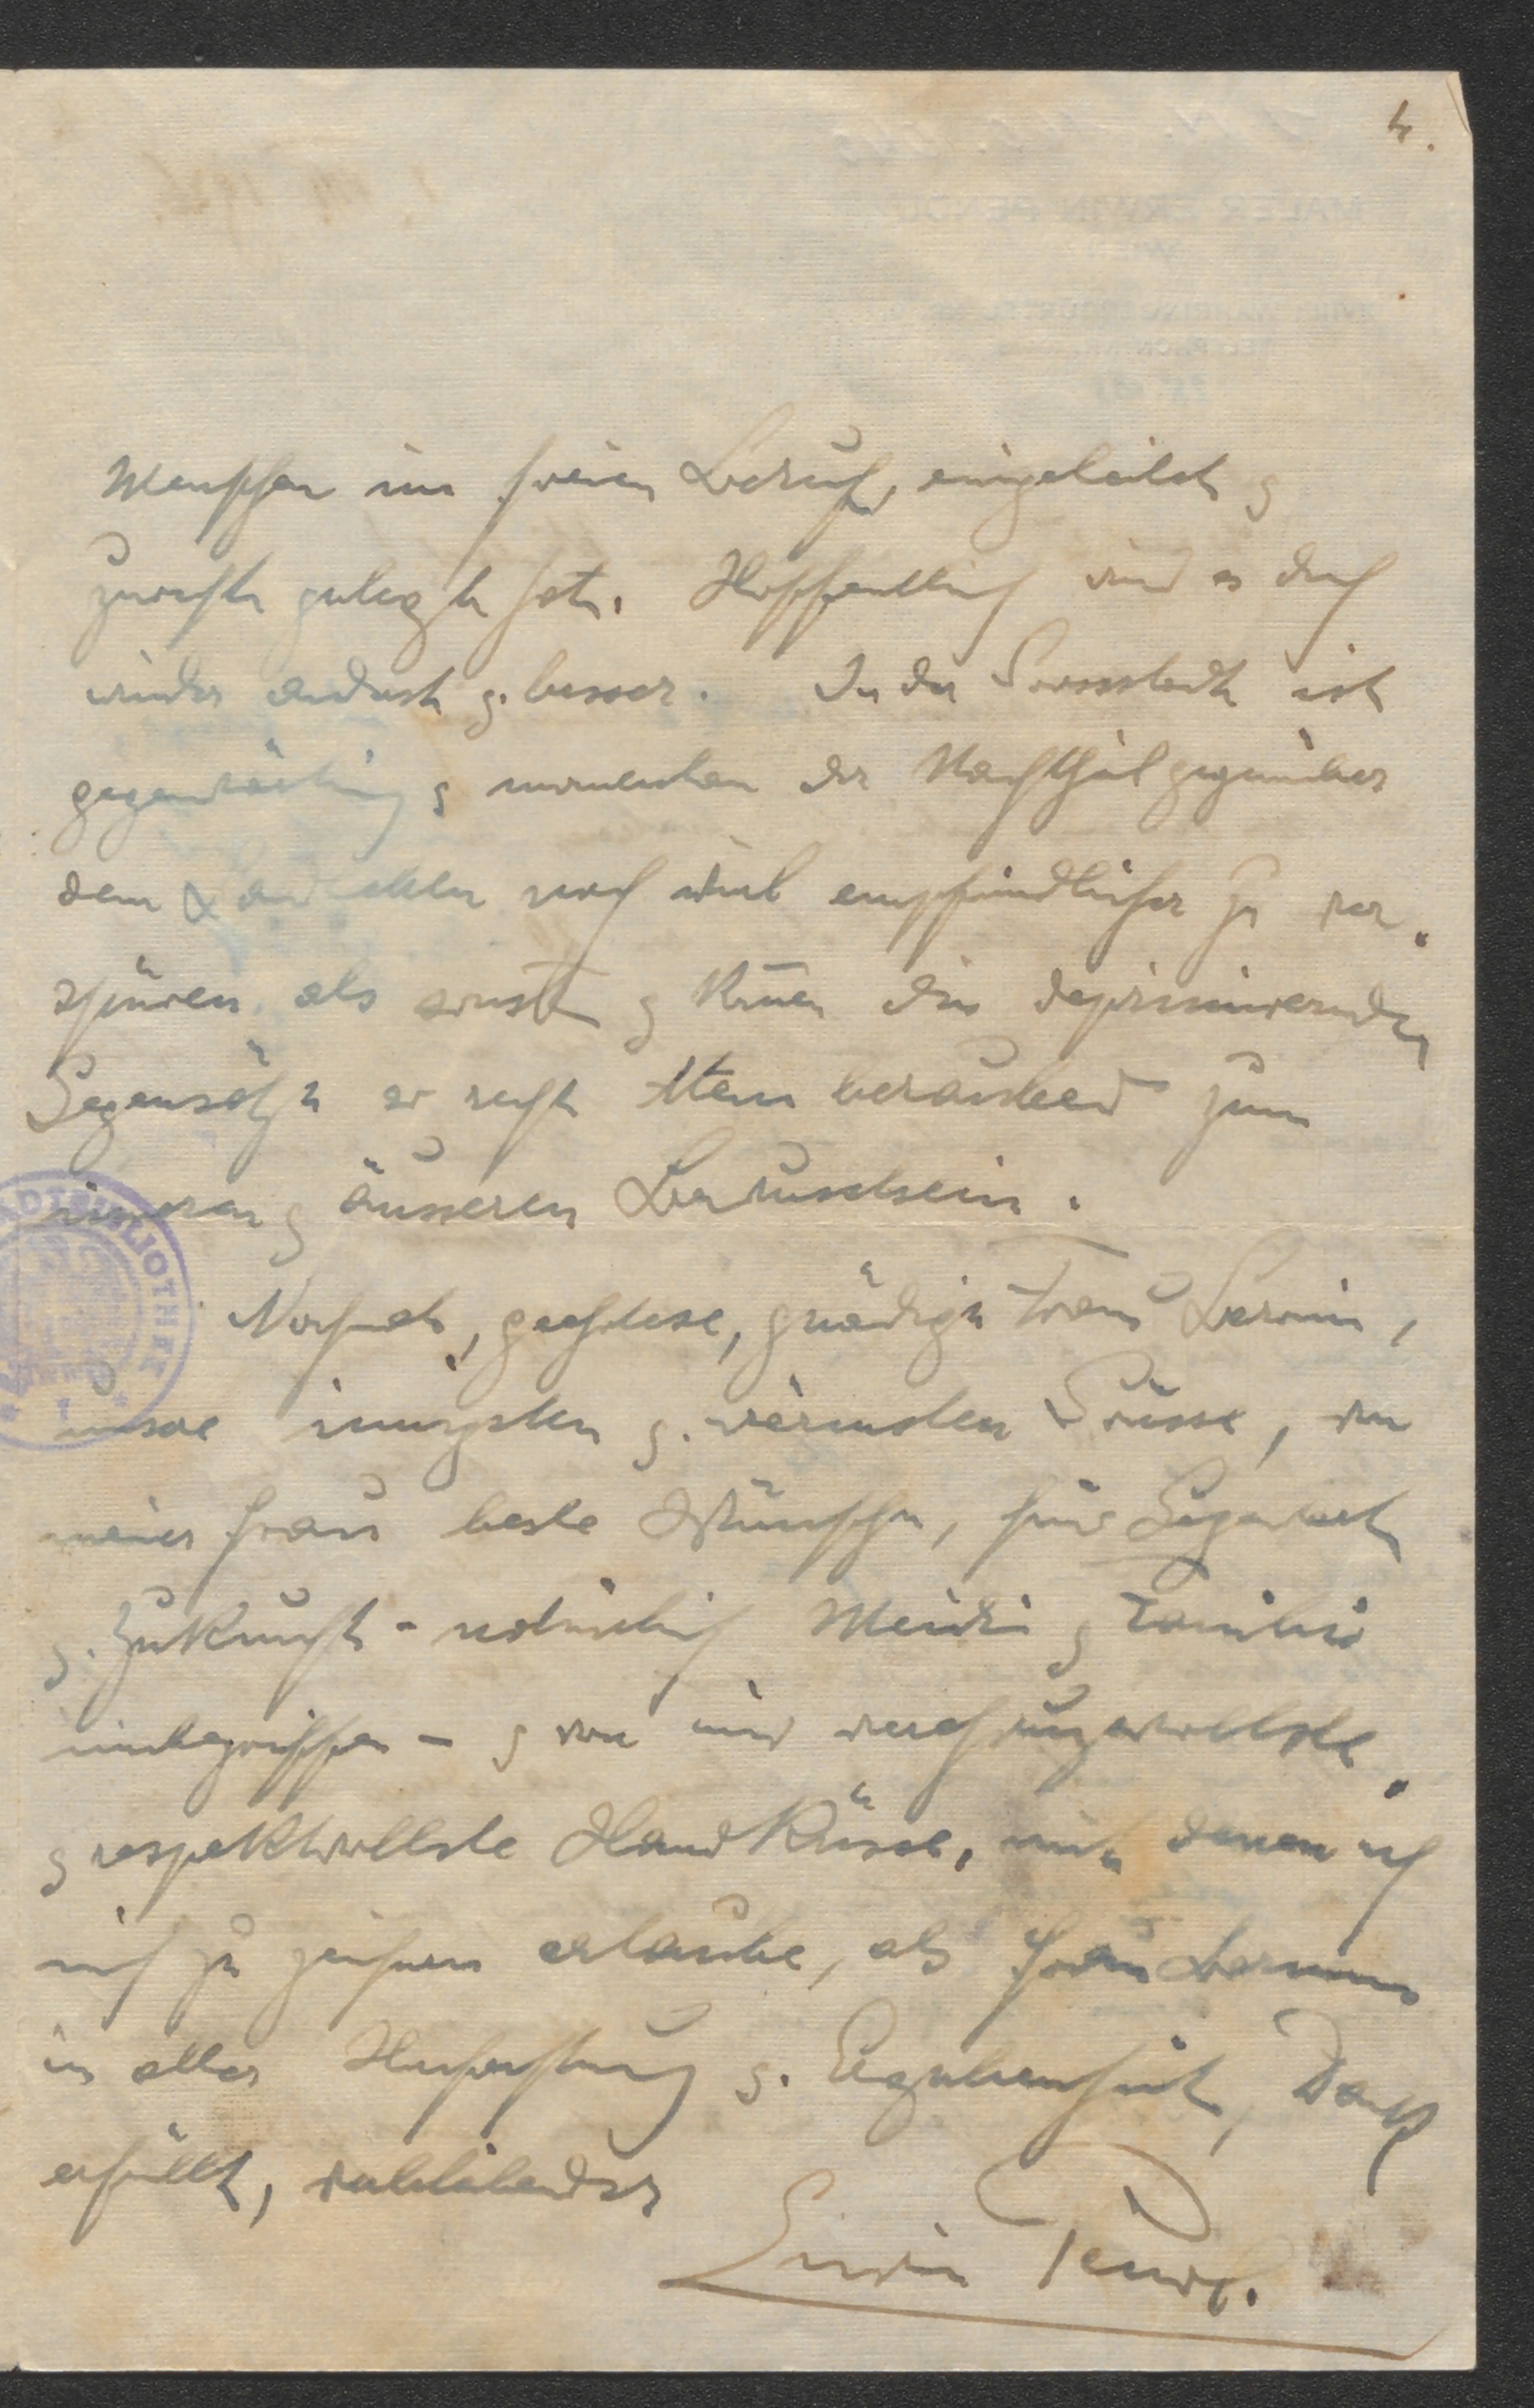 4.
Menschen im freien Beruf, eingeteilt &
zurecht gelegt hat. Hoffentlich wird es doch
wieder anders & besser. In der Grossstadt ist
gegenwärtig & momentan der Nachtheil gegenüber
dem Landleben noch viel empfindlicher zu ver-
spüren als sonst & kommen die deprimierenden
Gegensätze so recht atemberaubend zum
inneren & äusseren Bewusstsein.
Nochmals, geehrteste, gnädige Frau
unsere innigsten & wärmsten Grüsse, von
meiner Frau beste Wünsche, für Gegenwart
& Zukunft - natürlich & Familie
inbegriffen - & von mir verehrungsvollste
& respektvollste Handküsse, mit denen ich
mich zu zeichnen erlaube, als Frau
in aller Hochachtung & Ergebenheit, Dank
erfüllt, verbleibender
Erwin Pendl.